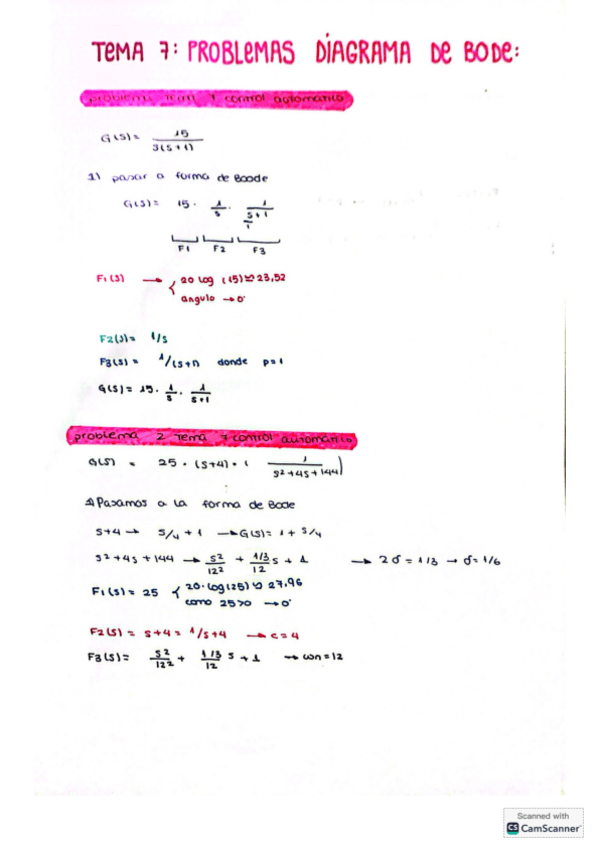 TEMA 7: PROBLEMAS DIAGRAMA DE BODE:
problema tema 7 control automatico
G(S) = 15 / 3(S+1)
1) pasar a forma de Boode
G(S) = 15 · 1/s · 1 / (s/1 + 1)
F1 F2 F3
F1(S) → { 20 log (15) ≅ 23,52
angulo → 0°
F2(S) = 1/s
F3(S) = 1/(s+1) donde p=1
G(S) = 15 · 1/s · 1/s+1
problema 2 tema 7 control automatico
G(S) = 25 · (s+4) · ( 1 / s²+4s+144 )
1) Pasamos a la forma de Bode
s+4 → s/4 + 1 → G(S) = 1 + s/4
s²+4s+144 → s²/12² + 1/3/12 s + 1 → 2σ = 1/3 → σ = 1/6
F1(S) = 25 { 20·log(25) ≅ 27,96
como 25>0 → 0°
F2(S) = s+4 = 1/s+4 → c=4
F3(S) = s²/12² + 1/3/12 s + 1 → wn=12
Scanned with
CS CamScanner